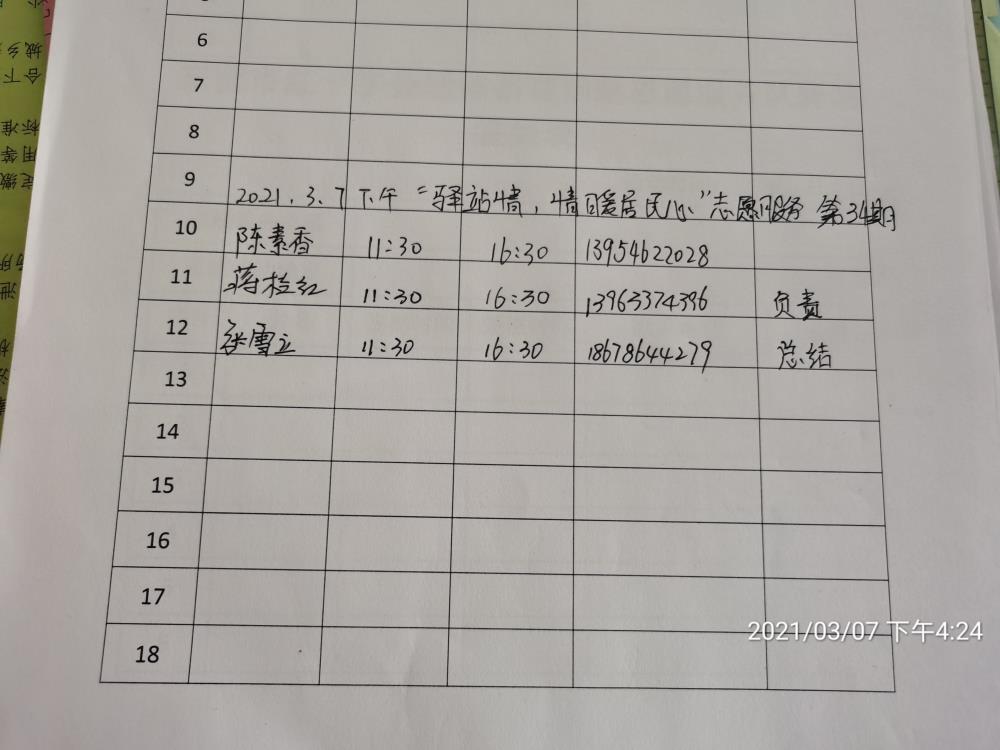 6
7
8
9 2021.3.7下午“驿站情,情暖居民心”志愿服务 第34期
10 陈素香 11:30 16:30 13954622028
11 蒋桂红 11:30 16:30 13963374396 负责
12 张雪立 11:30 16:30 18678644279 总结
13
14
15
16
17
18
2021/03/07 下午4:24
城乡
合下
标准
用等
定缴